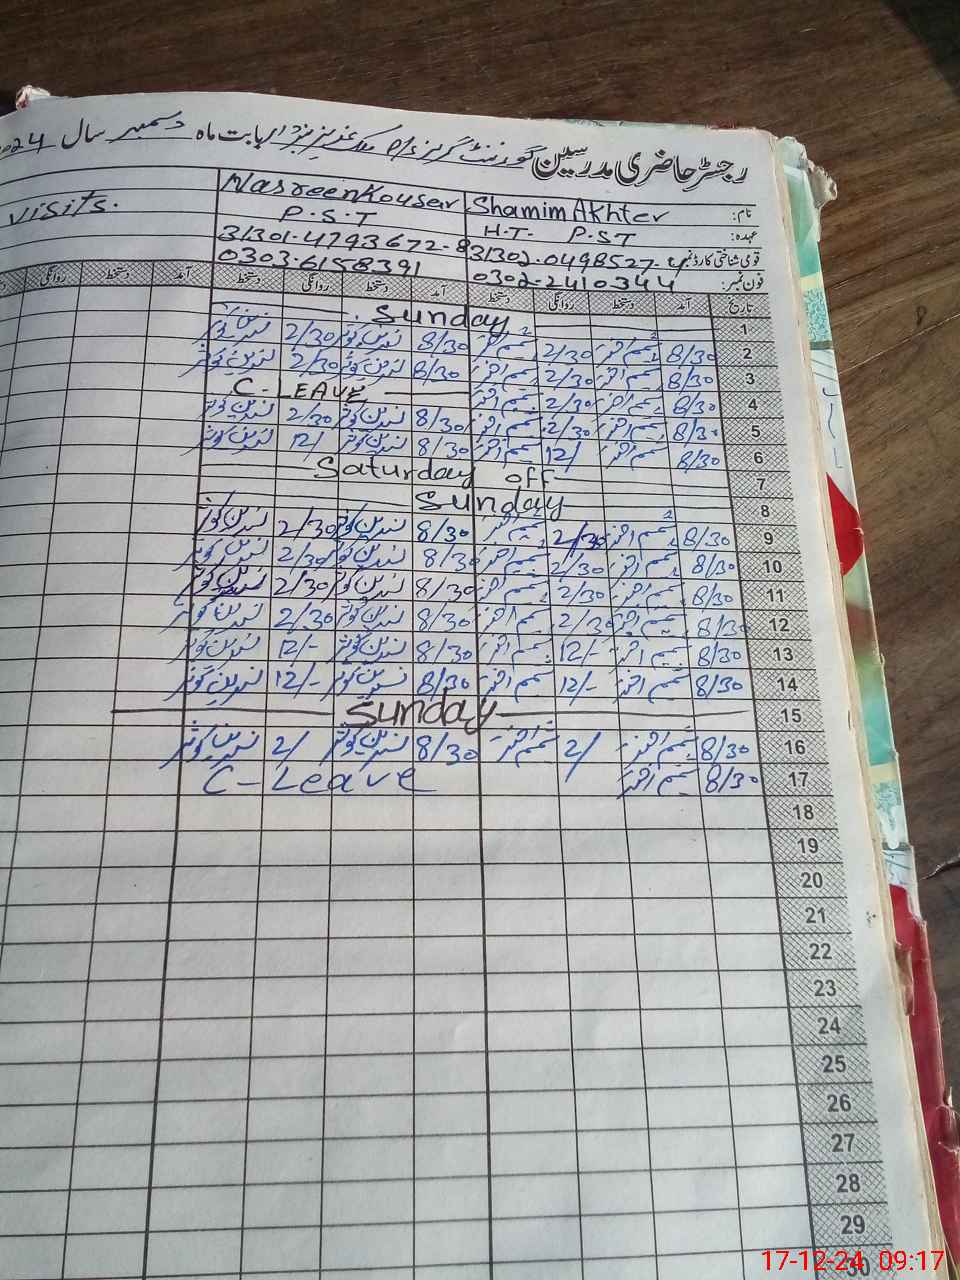 رجسٹر حاضری مدرسین گورنمنٹ گرلز بابت ماہ دسمبر سال 2024
نام: Shamim Akhter Nasreen Kousar visits.
عہدہ: H.T. P.S.T P.S.T
قومی شناختی کارڈ نمبر: 31302.0498527. 31301.4793672-8
فون نمبر: 0302-2410344 0303.6158391
تاریخ آمد دستخط روانگی دستخط آمد دستخط روانگی دستخط آمد دستخط روانگی
1 Sunday
2 8/30 شمیم اختر 2/30 شمیم اختر 8/30 نسرین کوثر 2/30 نسرین کوثر
3 8/30 شمیم اختر 2/30 شمیم اختر 8/30 نسرین کوثر 2/30 نسرین کوثر
4 8/30 شمیم اختر 2/30 شمیم اختر C-LEAVE
5 8/30 شمیم اختر 2/30 شمیم اختر 8/30 نسرین کوثر 2/30 نسرین کوثر
6 8/30 شمیم اختر 12/ شمیم اختر 8/30 نسرین کوثر 12/- نسرین کوثر
7 Saturday off
8 Sunday
9 8/30 شمیم اختر 2/30 شمیم اختر 8/30 نسرین کوثر 2/30 نسرین کوثر
10 8/30 شمیم اختر 2/30 شمیم اختر 8/30 نسرین کوثر 2/30 نسرین کوثر
11 8/30 شمیم اختر 2/30 شمیم اختر 8/30 نسرین کوثر 2/30 نسرین کوثر
12 8/30 شمیم اختر 2/30 شمیم اختر 8/30 نسرین کوثر 2/30 نسرین کوثر
13 8/30 شمیم اختر 12/- شمیم اختر 8/30 نسرین کوثر 12/- نسرین کوثر
14 8/30 شمیم اختر 12/- شمیم اختر 8/30 نسرین کوثر 12/- نسرین کوثر
15 Sunday
16 8/30 شمیم اختر 2/ شمیم اختر 8/30 نسرین کوثر 2/ نسرین کوثر
17 8/30 شمیم اختر C-Leave
18
19
20
21
22
23
24
25
26
27
28
29
30
17-12-24 09:17